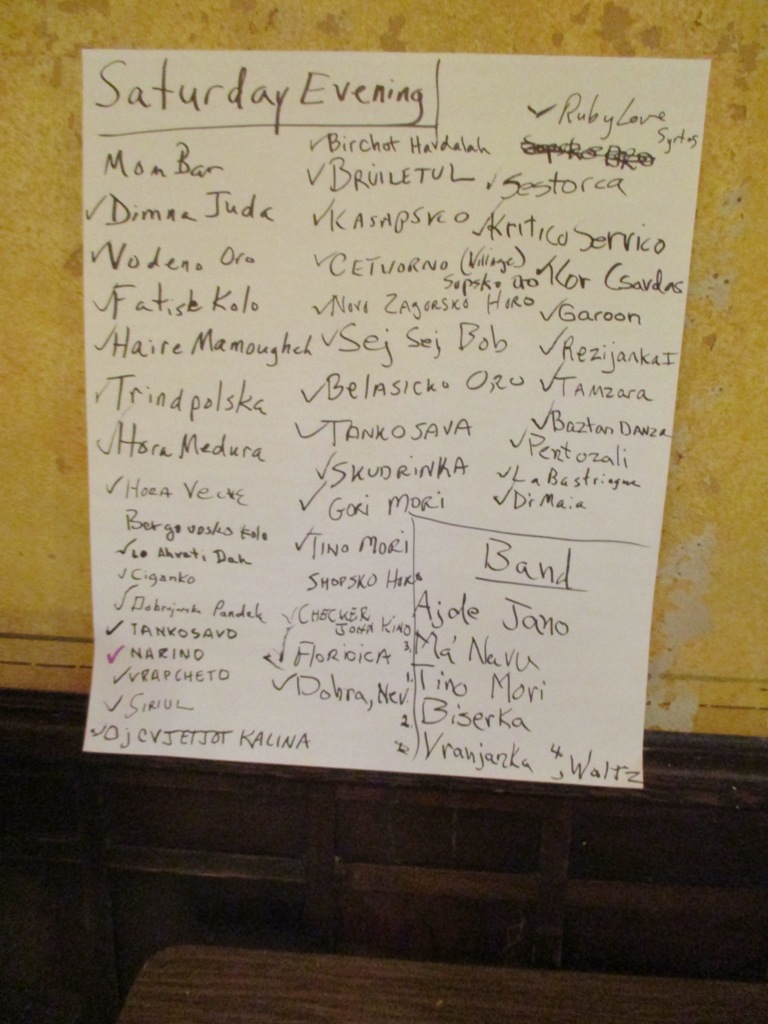 Saturday Evening
Mom Bar
✓Dimna Juda
✓Vodeno Oro
✓Fatise Kolo
✓Haire Mamougheh
✓Trindpolska
✓Hora Medura
✓Hora Veche
Bergovosko Kolo
✓Lo Ahvati Dah
✓Ciganko
✓Dobrujanska Pandela
✓TANKOSAVO
✓NARINO
✓VRAPCHETO
✓SIRIUL
✓Oj CVJETJOT KALINA
✓Birchot Havdalah
✓BRÚILETUL
✓KASAPSKO
✓CETVORNO (Village)
Sopsko oro
✓Novo ZAGORSKO HORO
✓Sej Sej Bob
✓Belasicko Oro
✓TANKOSAVA
✓SKUDRINKA
✓GORI MORI
✓TINO MORI
SHOPSKO HORO
✓CHECKER
JOHN KINO
✓FLORICICA
✓Dobra, Nev.
✓Ruby Love
Syrtos
✓Sestorca
✓Kritico Servico
✓Kor Csardas
✓Garoon
✓Rezijanka I
✓TAMZARA
✓Baztan DANZA
✓Pentozali
✓La Bastringue
✓Dir Maia
Band
Ajde Jano
3. Má Navu
1. Tino Mori
2. Biserka
Vranjanka 4, Waltz